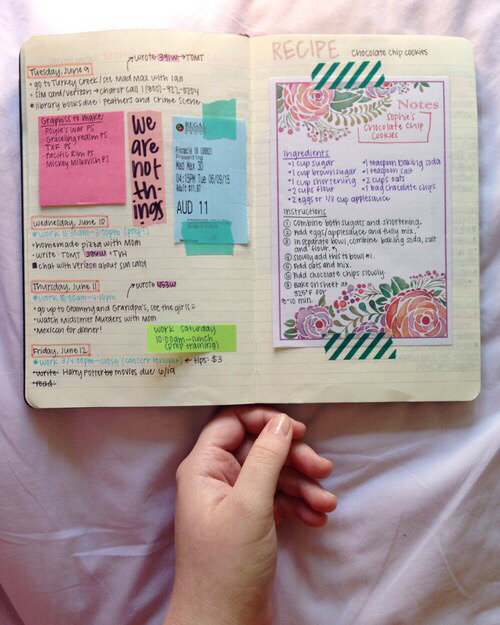 wrote 391W → TOMT
Tuesday, June 9
• go to Turkey Creek/see Mad Max with Ian
• sim card/verizon → charge? call 1(800)-922-0204
* library books due: Feathers and Crime Scene
Graphics to make:
Graceling realm PS
TXF PS
Pacific Rim PS
Mickey Milkovich PS
We
are
not
th-
ings
REGAL
Pinnacle 18
Presenting
Mad Max 3D
04:15PM Tue 06/09/15
AUD 11
Wednesday, June 10
• homemade pizza with Mom
• write: TOMT 391W → TVH
chat with verizon about sim card
Thursday, June 11
wrote 453W
• go up to Grammy and Grandpa's, see the girls
• watch Midsomer Murders with Mom
• Mexican for dinner!
work Saturday
10:00am-lunch
(prep training)
Friday, June 12
← tips: $3
-write- Harry Potter movies due 6/19
-read-
RECIPE Chocolate Chip Cookies
Notes
Sophie's
Chocolate Chip
Cookies
Ingredients
• 1 cup sugar
• 1 cup brown sugar
• 1 cup shortening
• 2 cups flour
• 2 eggs or 1/3 cup applesauce
• 1 teaspoon baking soda
• 1 teaspoon salt
• 2 cups oats
• 1 bag chocolate chips
Instructions
① Combine both sugars and shortening.
② Add eggs/applesauce and fully mix.
③ In separate bowl, combine baking soda, salt
and flour.
④ Slowly add this to bowl #1.
⑤ Add oats and mix.
⑥ Add chocolate chips slowly.
⑦ Bake on sheet at
325°F for
8-10 min.